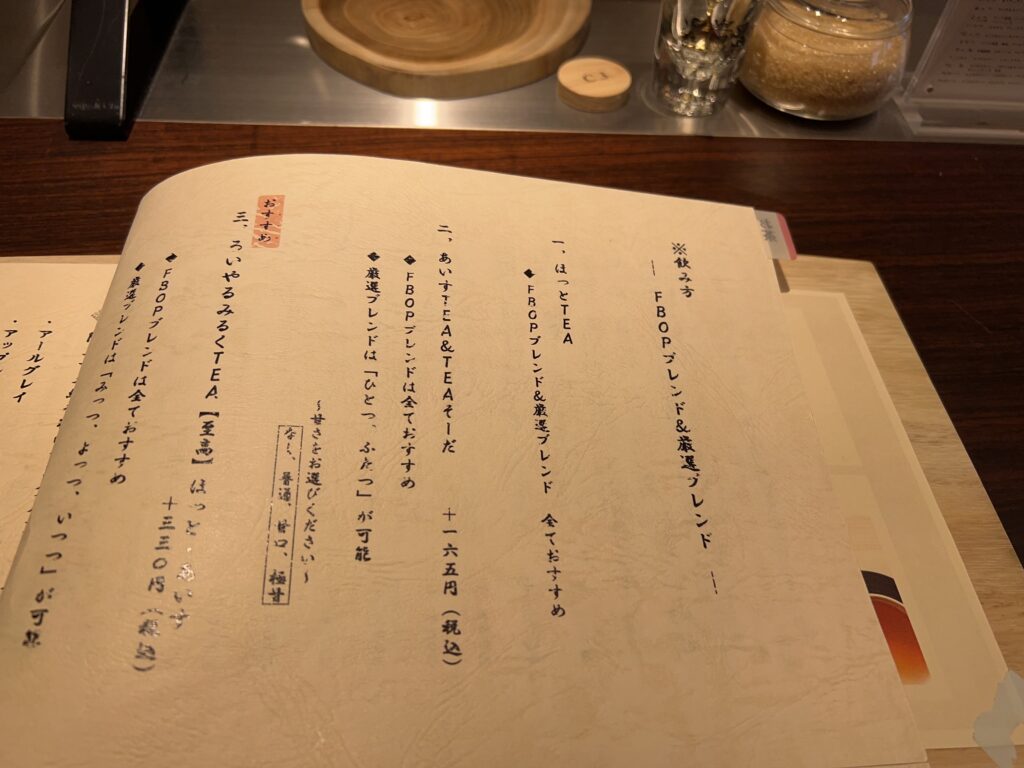 ※飲み方
― FBOPブレンド&厳選ブレンド ―
一、ほっとTEA
◆FBOPブレンド&厳選ブレンド 全ておすすめ
二、あいすTEA&TEAそーだ +一六五円(税込)
◆FBOPブレンドは全ておすすめ
◆厳選ブレンドは「ひとつ、ふたつ」が可能
~甘さをお選びください~
なし、普通、甘口、極甘
おすすめ
三、ろいやるみるくTEA【至高】ほっと あいす
+三三〇円(税込)
◆FBOPブレンドは全ておすすめ
◆厳選ブレンドは「みっつ、よっつ、いつつ」が可能
・アールグレイ